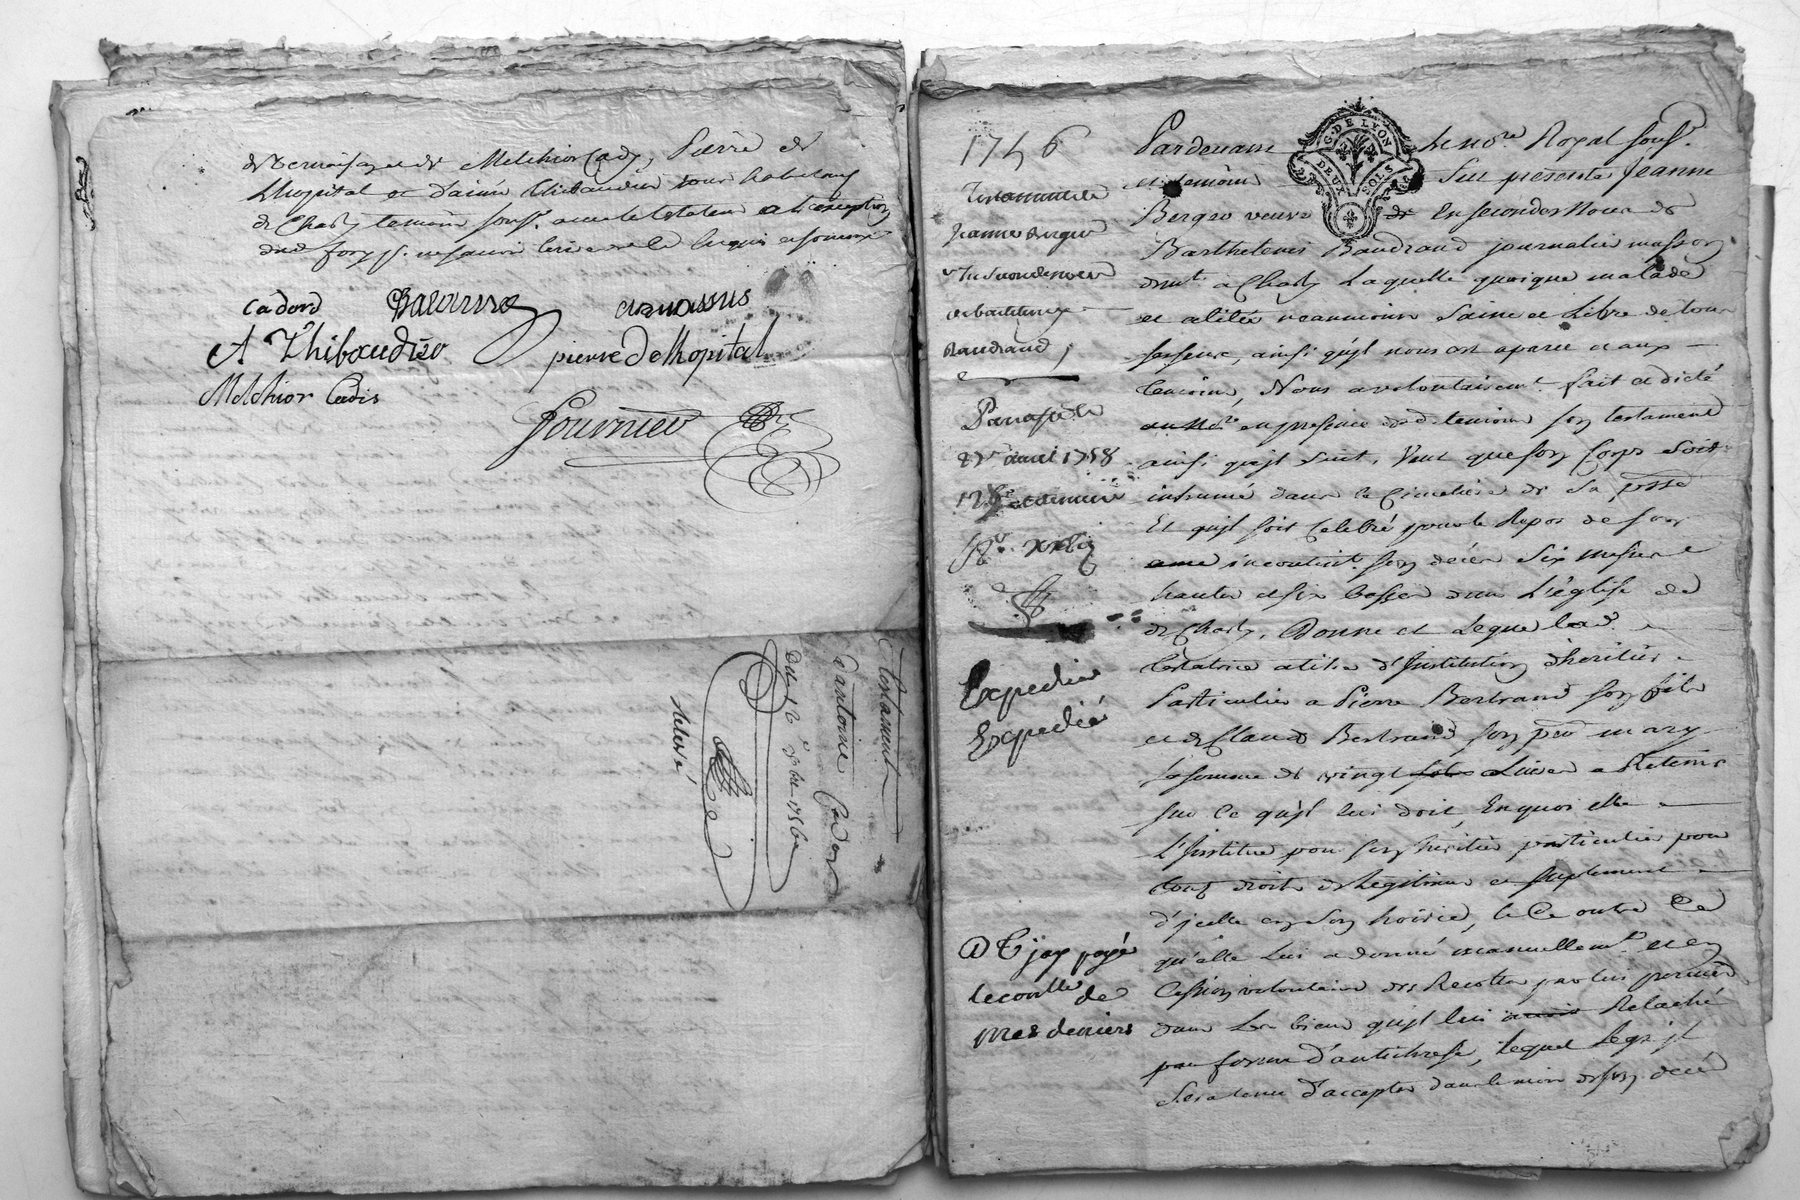 de Melchior Cadis, Pierre de
L'hopital et d'aimé Thibaudier tous habitans
de Charly temoins souss.
Cadord
A Thibaudier
pierre Delhopital
Melchior Cadis
Fournier
Testament
D'antoine Cador
Du 12 xbre 1756
relevé
1756
Testament de
Jeanne Berger
Baudrand
avril 1758
Expediée
Expediée
G. DE LYON
DEUX SOLS
Pardevant le no.re Royal souss.
et temoins Fut présente Jeanne
Berger veuve en secondes Noces de
Barthelemi Baudrand journalier masson
dem.t a Charly Laquelle quoique malade
et alitée neanmoins Saine et Libre de tous
ses sens, ainsi qu'jl nous est aparu et aux
temoins, Nous a volontairem.t fait et dicté
en presence desd. temoins son testament
ainsi qu'jl suit, Veut que son Corps soit
inhumé dans le Cimetière de Sa p.sse
Et qu'jl soit Celebré pour le Repos de son
ame incontin.t son décès Six Messes
hautes et six basses dans L'église
de Charly, Donne et Legue lad.
testatrice a titre d'Institution d'heritier
Particulier a Pierre Bertrand son fils
et de Claude Bertrand son p.er mary
la somme de vingt Livres a Retenir
sur Ce qu'jl lui doit, En quoi elle
L'Institue pour son héritier particulier pour
tous droits de Légitime et suplement
d'jcelle en son hoirie, le Ce outre Ce
qu'elle Lui a donné manuellem.t et en
Cession volontaire des Recoltes par lui perçues
dans Les biens qu'jl lui Relaché
par forme d'antichrese, lequel Legs jl
Sera tenu d'accepter dans le mois de son décès
payé
le contrôlle de
mes deniers